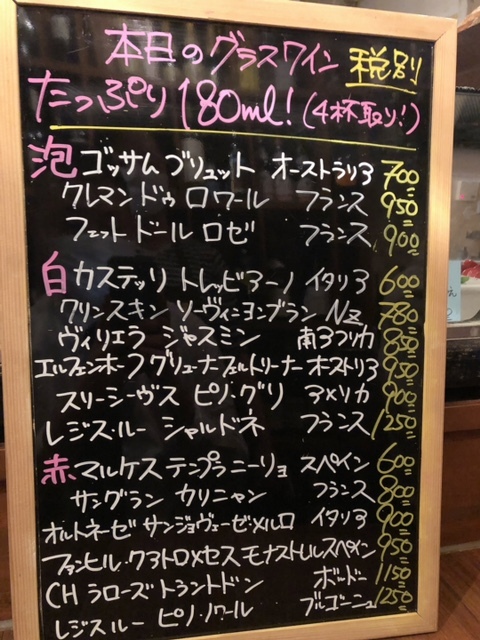 本日のグラスワイン 税別
たっぷり180ml!(4杯取り!)
泡 ゴッサム ブリュット オーストラリア 700
クレマンドゥ ロワール フランス 950
フェット ドール ロゼ フランス 900
白 カステッリ トレッビアーノ イタリア 600
クリンスキン ソーヴィニヨンブラン NZ 780
ヴィリエラ ジャスミン 南アフリカ 850
エルフェンホーフ グリューナーフェルトリーナー オーストリア 950
スリーシーヴス ピノ・グリ アメリカ 900
レジス・ルー シャルドネ フランス 1250
赤 マルケス テンプラニーリョ スペイン 600
サングラン カリニャン フランス 800
オルトネーゼ サンジョヴェーゼ・メルロ イタリア 900
ファンヒル・クアトロメセス モナストレル スペイン 950
CH ラローズ トラントドン ボルドー 1150
レジス・ルー ピノ・ノワール ブルゴーニュ 1250